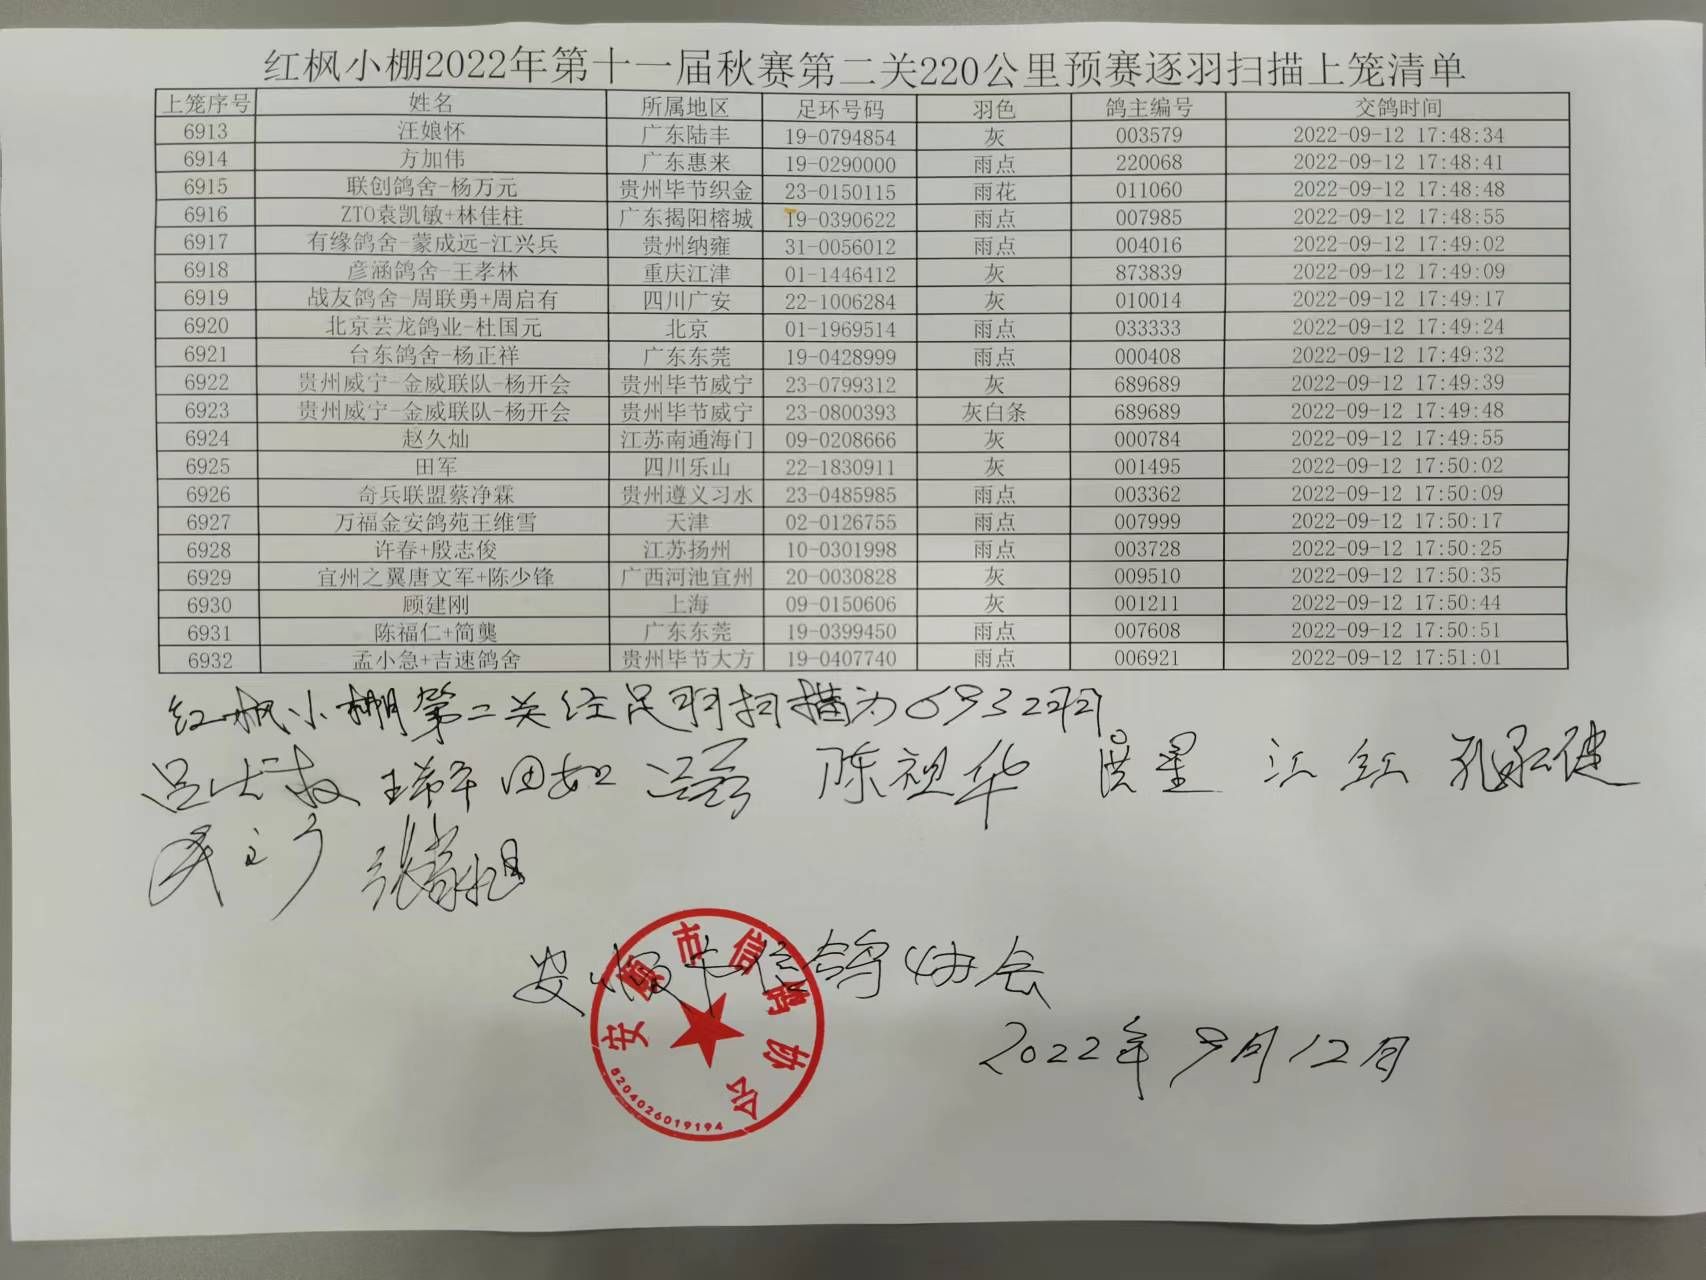 红枫小棚2022年第十一届秋赛第二关220公里预赛逐羽扫描上笼清单
上笼序号 姓名 所属地区 足环号码 羽色 鸽主编号 交鸽时间
6913 汪娘怀 广东陆丰 19-0794854 灰 003579 2022-09-12 17:48:34
6914 方加伟 广东惠来 19-0290000 雨点 220068 2022-09-12 17:48:41
6915 联创鸽舍-杨万元 贵州毕节织金 23-0150115 雨花 011060 2022-09-12 17:48:48
6916 ZTO袁凯敏+林佳柱 广东揭阳榕城 19-0390622 雨点 007985 2022-09-12 17:48:55
6917 有缘鸽舍-蒙成远-江兴兵 贵州纳雍 31-0056012 雨点 004016 2022-09-12 17:49:02
6918 彦涵鸽舍-王孝林 重庆江津 01-1446412 灰 873839 2022-09-12 17:49:09
6919 战友鸽舍-周联勇+周启有 四川广安 22-1006284 灰 010014 2022-09-12 17:49:17
6920 北京芸龙鸽业-杜国元 北京 01-1969514 雨点 033333 2022-09-12 17:49:24
6921 台东鸽舍-杨正祥 广东东莞 19-0428999 雨点 000408 2022-09-12 17:49:32
6922 贵州威宁-金威联队-杨开会 贵州毕节威宁 23-0799312 灰 689689 2022-09-12 17:49:39
6923 贵州威宁-金威联队-杨开会 贵州毕节威宁 23-0800393 灰白条 689689 2022-09-12 17:49:48
6924 赵久灿 江苏南通海门 09-0208666 灰 000784 2022-09-12 17:49:55
6925 田军 四川乐山 22-1830911 灰 001495 2022-09-12 17:50:02
6926 奇兵联盟蔡净霖 贵州遵义习水 23-0485985 雨点 003362 2022-09-12 17:50:09
6927 万福金安鸽苑王维雪 天津 02-0126755 雨点 007999 2022-09-12 17:50:17
6928 许春+殷志俊 江苏扬州 10-0301998 雨点 003728 2022-09-12 17:50:25
6929 宜州之翼唐文军+陈少锋 广西河池宜州 20-0030828 灰 009510 2022-09-12 17:50:35
6930 顾建刚 上海 09-0150606 灰 001211 2022-09-12 17:50:44
6931 陈福仁+简龑 广东东莞 19-0399450 雨点 007608 2022-09-12 17:50:51
6932 孟小急+吉速鸽舍 贵州毕节大方 19-0407740 雨点 006921 2022-09-12 17:51:01
红枫小棚第二关经足羽扫描为6932羽
陈视华 洪星 江红
安顺市信鸽协会
安顺市信鸽协会
5204026019194
2022年9月12日